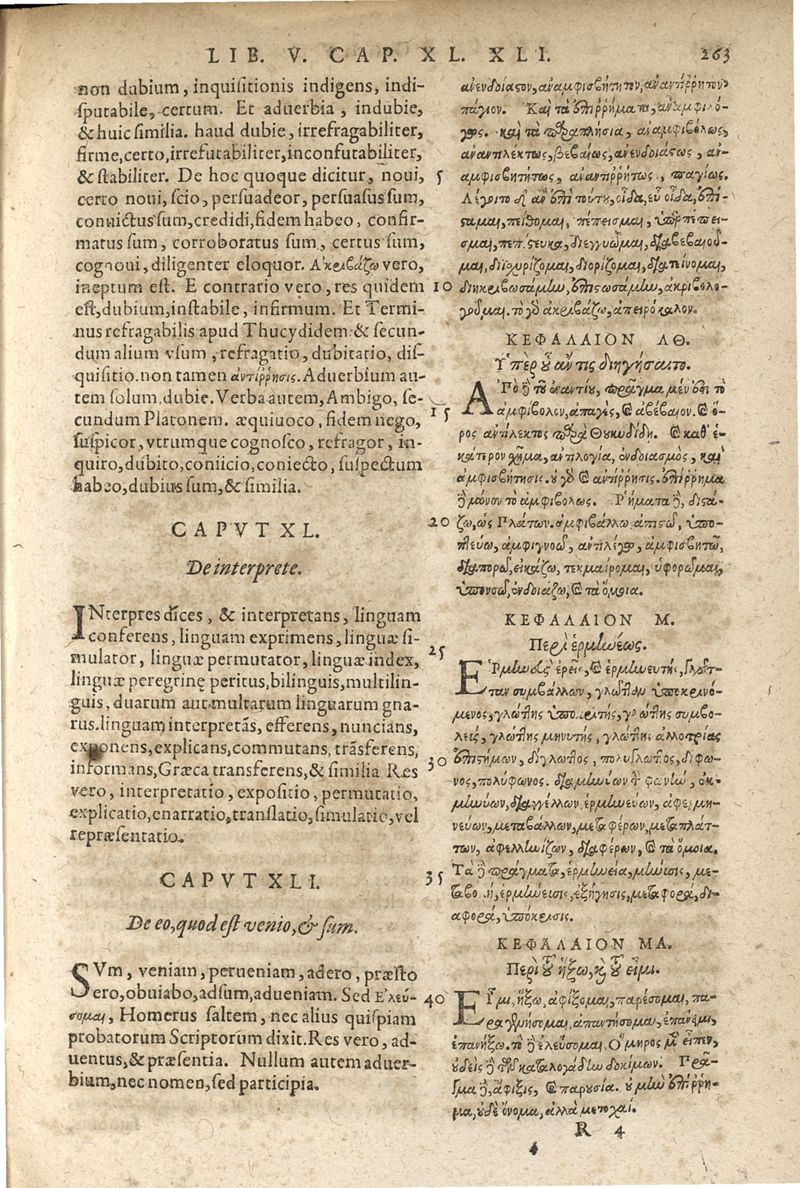 LIB. V. CAP. XL. XLI. 263
non dubium, inquisitionis indigens, indi-
sputabile, certum. Et aduerbia, indubie,
& huic similia. haud dubie, irrefragabiliter,
firme, certo, irrefutabiliter, inconfutabiliter,
& stabiliter. De hoc quoque dicitur, noui,
certo noui, scio, persuadeor, persuasus sum,
conuictus sum, credidi, fidem habeo, confir-
matus sum, corroboratus sum, certus sum,
cognoui, diligenter eloquor. Ἀκριβάζω vero,
ineptum est. E contrario vero, res quidem
est, dubium, instabile, infirmum. Et Termi-
nus refragabilis apud Thucydidem & secun-
dum alium vsum, refragatio, dubitatio, dis-
quisitio. non tamen ἀντίῤῥησις. Aduerbium au-
tem solum, dubie. Verba autem, Ambigo, se-
cundum Platonem. æquiuoco, fidem nego,
suspicor, vtrumque cognosco, refragor, in-
quiro, dubito, coniicio, coniecto, suspectum
habeo, dubius sum, & similia.
CAPVT XL.
De interprete.
INterpres dices, & interpretans, linguam
conferens, linguam exprimens, linguæ si-
mulator, linguæ permutator, linguæ index,
linguæ peregrinę peritus, bilinguis, multilin-
guis, duarum aut multarum linguarum gna-
rus. linguam interpretãs, efferens, nuncians,
exponens, explicans, commutans, trãsferens,
informans, Græca transferens, & similia Res
vero, interpretatio, expositio, permutatio,
explicatio, enarratio, translatio, simulatio, vel
repræsentatio.
CAPVT XLI.
De eo, quod est venio, & sum.
SVm, veniam, perueniam, adero, præsto
ero, obuiabo, adsum, adueniam. Sed Ἐλεύ-
σομαι, Homerus saltem, nec alius quispiam
probatorum Scriptorum dixit. Res vero, ad-
uentus, & præsentia. Nullum autem aduer-
bium, nec nomen, sed participia.
5
10
15
20
25
30
35
40
ἀνενδοίαστον, ἀναμφισβήτητον, ἀναντίῤῥητον,
πάγιον. Καὶ τὰ ἐπιῤῥήματα, ἀναμφιλό-
γως. καὶ τὰ παραπλήσια, ἀναμφιβόλως,
ἀναντιλέκτως, βεβαίως, ἀνενδοιάστως, ἀν-
αμφισβητήτως, ἀναντιῤῥήτως, παγίως.
Λέγοιτο δ' ἂν ἐπὶ τούτῳ, οἶδα, εὖ οἶδα, ἐπί-
σταμαι, πείθομαι, πέπεισμαι, ὑπερπέπει-
σμαι, πεπίστευκα, διεγγυῶμαι, διαβεβαιοῦ-
μαι, διϊσχυρίζομαι, διορίζομαι, διατείνομαι,
διηκριβωσάμην, ἐπιστωσάμην, ἀκριβολο-
γοῦμαι. τὸ γὸ ἀκριβάζω, ἀπειρόκαλον.
ΚΕΦΑΛΑΙΟΝ ΛΘ.
Ὑπὲρ οὗ ἄν τις διηγήσαιτο.
ΑΠὸ ἢ τοῦ ἐναντίου, πρᾶγμα μέν ἐστι τὸ
ἀμφίβολον, ἀπαγὲς, καὶ ἀβέβαιον. καὶ ὅ-
ρος ἀντίλεκτος παρὰ Θουκυδίδῃ. καὶ καθ' ἑ-
κάτερον χῆμα, ἀντιλογία, ἐνδοιασμὸς, καὶ
ἀμφισβήτησις. οὐ γὸ καὶ ἀντίῤῥησις. ἐπίῤῥημα
ἢ μόνον τὸ ἀμφιβόλως. Ῥήματα ἢ, διστά-
ζω, ὡς Πλάτων. ἀμφιβάλλω ἀπιστῶ, ὑπο-
πτεύω, ἀμφιγνοῶ, ἀντιλέγω, ἀμφισβητῶ,
διαπορῶ, εἰκάζω, τεκμαίρομαι, ὑφορῶμαι,
ὑπονοῶ, ἐνδοιάζω, καὶ τὰ ὅμοια.
ΚΕΦΑΛΑΙΟΝ Μ.
Περὶ ἑρμηνέως.
ΕΡμηνεὺς ἐρεῖς, καὶ ἑρμηνευτὴς, γλῶτ-
ταν συμβάλλων, γλῶτταν ὑποκρινό-
μενος, γλώττης ὑποκριτής, γλώττης συμβο-
λεὺς, γλώττης μηνυτὴς, γλώττης ἀλλοτρίας
ἐπιστήμων, δίγλωττος, πολύγλωττος, δίφω-
νος, πολύφωνος. διαμηνύων φωνὴν, ἐκ-
μηνύων, διαγγέλλων, ἑρμηνεύων, ἀφερμη-
νεύων, μεταβάλλων, μεταφέρων, μεταπλάτ-
των, ἀφελληνίζων, διαφέρων, καὶ τὰ ὅμοια.
Τὰ ἢ πράγματα, ἑρμηνεία, μήνυσις, με-
ταβολή, ἑρμήνευσις, ἐξήγησις, μεταφορά, δι-
αφορά, ὑπόκρισις.
ΚΕΦΑΛΑΙΟΝ ΜΑ.
Περὶ τοῦ ἥξω, καὶ τοῦ εἶμι.
ΕἾμι, ἥξω, ἀφίξομαι, παρέσομαι, πα-
ραγενήσομαι, ἀπαντήσομαι, ἐπάνειμι,
ἐπανήξω. τὸ ἢ ἐλεύσομαι. Ὅμηρος μὲν εἶπεν,
οὐδεὶς ἢ τῶν καταλογάδην δοκίμων. Πρᾶ-
γμα ἢ, ἄφιξις, καὶ παρουσία. οὐ μὴν ἐπίῤῥη-
μα, οὐδὲ ὄνομα, ἀλλὰ μετοχαί.
R 4